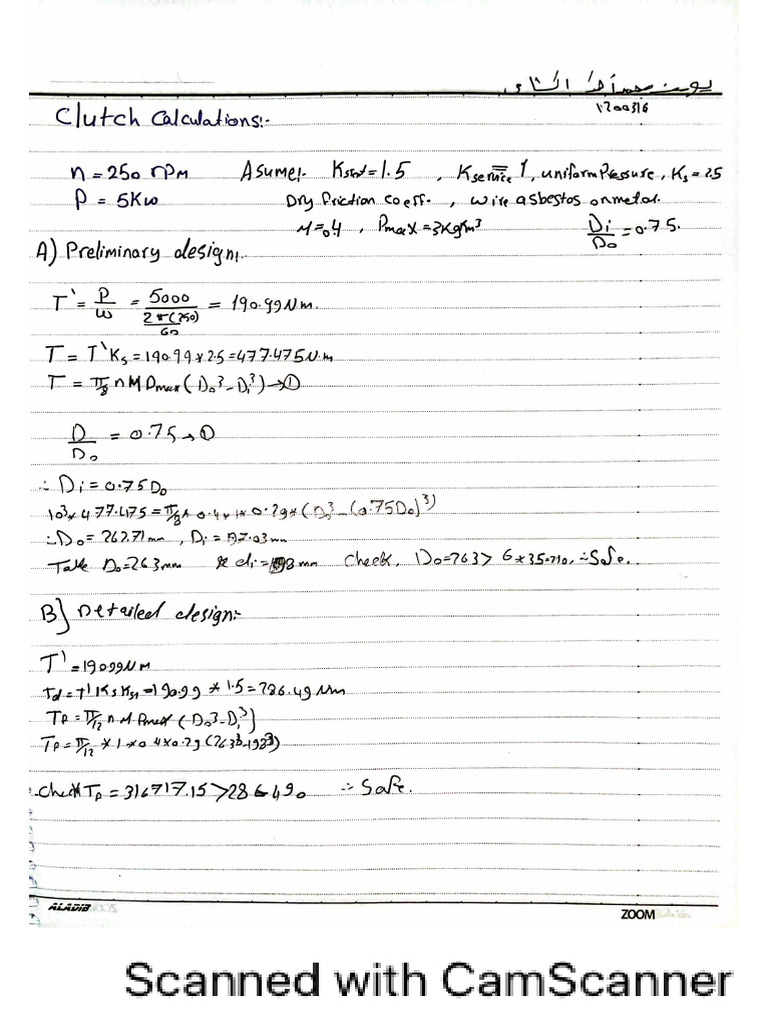 يوسف محمد احمد الشناوى
1200316
Clutch Calculations:-
n = 250 rpm Asume:- Kstat = 1.5 , Kservice = 1, uniform Pressure, Ks = 2.5
P = 5Kw Dry friction coeff. , wire asbestos on metal.
M = 0.4 , Pmax = 3Kg/cm³ Di/Do = 0.75.
A) Preliminary design:
T' = P/w = 5000/(2π(250)/60) = 190.99 Nm.
T = T'Ks = 190.99 x 2.5 = 477.475 N.m
T = π/8 n M Pmax (Do³ - Di³) → ①
D/Do = 0.75 → ①
∴ Di = 0.75Do
10³ x 477.475 = π/8 x 0.4 x 1 x 0.29 x (Do³ - (0.75Do)³)
∴ Do = 262.71 mm , Di = 197.03 mm
Take Do = 263 mm & di = 198 mm Check, Do = 263 > 6 x 35.710, ∴ Safe.
B] Detailed design:-
T' = 190.99 Nm
Td = T' Ks Kst = 190.99 * 1.5 = 286.49 Nm
Tp = π/12 n M Pmax (Do³ - Di³)
Tp = π/12 x 1 x 0.4 x 0.29 (263³ - 198³)
Check Tp = 316717.15 > 286490 ∴ Safe.
ALADIB
ZOOM
Scanned with CamScanner